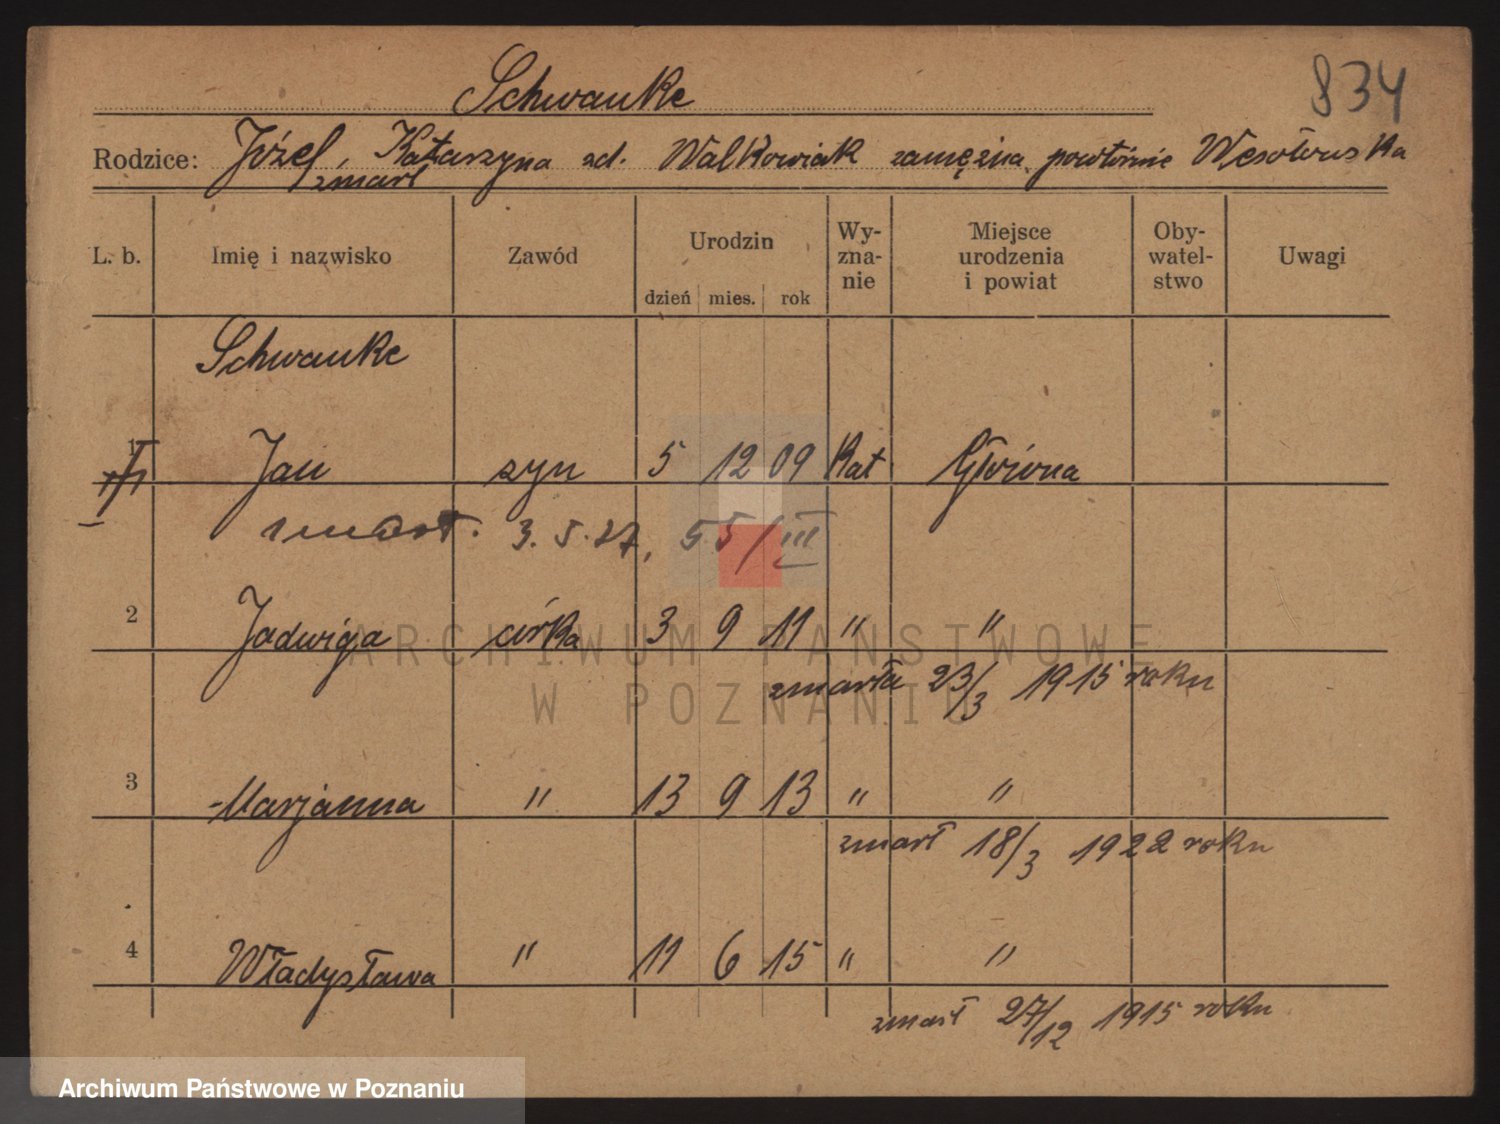 Schwanke
834
Rodzice: Józef, Katarzyna zd. Walkowiak zamężna powtórnie Wesołowska
zmarł
L. b. Imię i nazwisko Zawód Urodzin dzień mies. rok Wyznanie Miejsce urodzenia i powiat Obywatelstwo Uwagi
Schwanke
1 Jan syn 5 12 09 Kat Główna
zmarł. 3. 5. 27, 55/III
2 Jadwiga córka 3 9 11 " "
zmarła 23/3 1915 roku
3 Marjanna " 13 9 13 " "
zmarł 18/3 1922 roku
4 Władysława " 11 6 15 " "
zmarł 27/12 1915 roku
ARCHIWUM PAŃSTWOWE
W POZNANIU
Archiwum Państwowe w Poznaniu